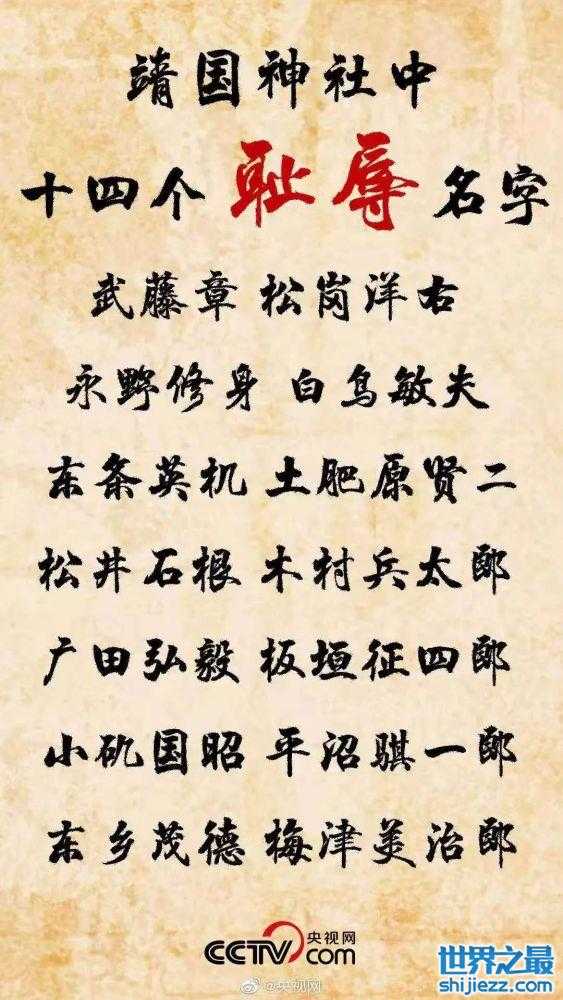 靖国神社中
十四个耻辱名字
武藤章 松岗洋右
永野修身 白鸟敏夫
东条英机 土肥原贤二
松井石根 木村兵太郎
广田弘毅 板垣征四郎
小矶国昭 平沼骐一郎
东乡茂德 梅津美治郎
CCTV 央视网
com
@央视网
世界之最
shijiezz.com